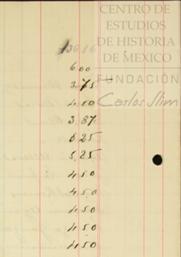 CENTRO DE
ESTUDIOS
DE HISTORIA
DE MEXICO
6 00
3 75
FUNDACIÓN
4 50
Carlos Slim
3 87
5 25
5 25
4 50
4 50
4 50
4 50
4 50